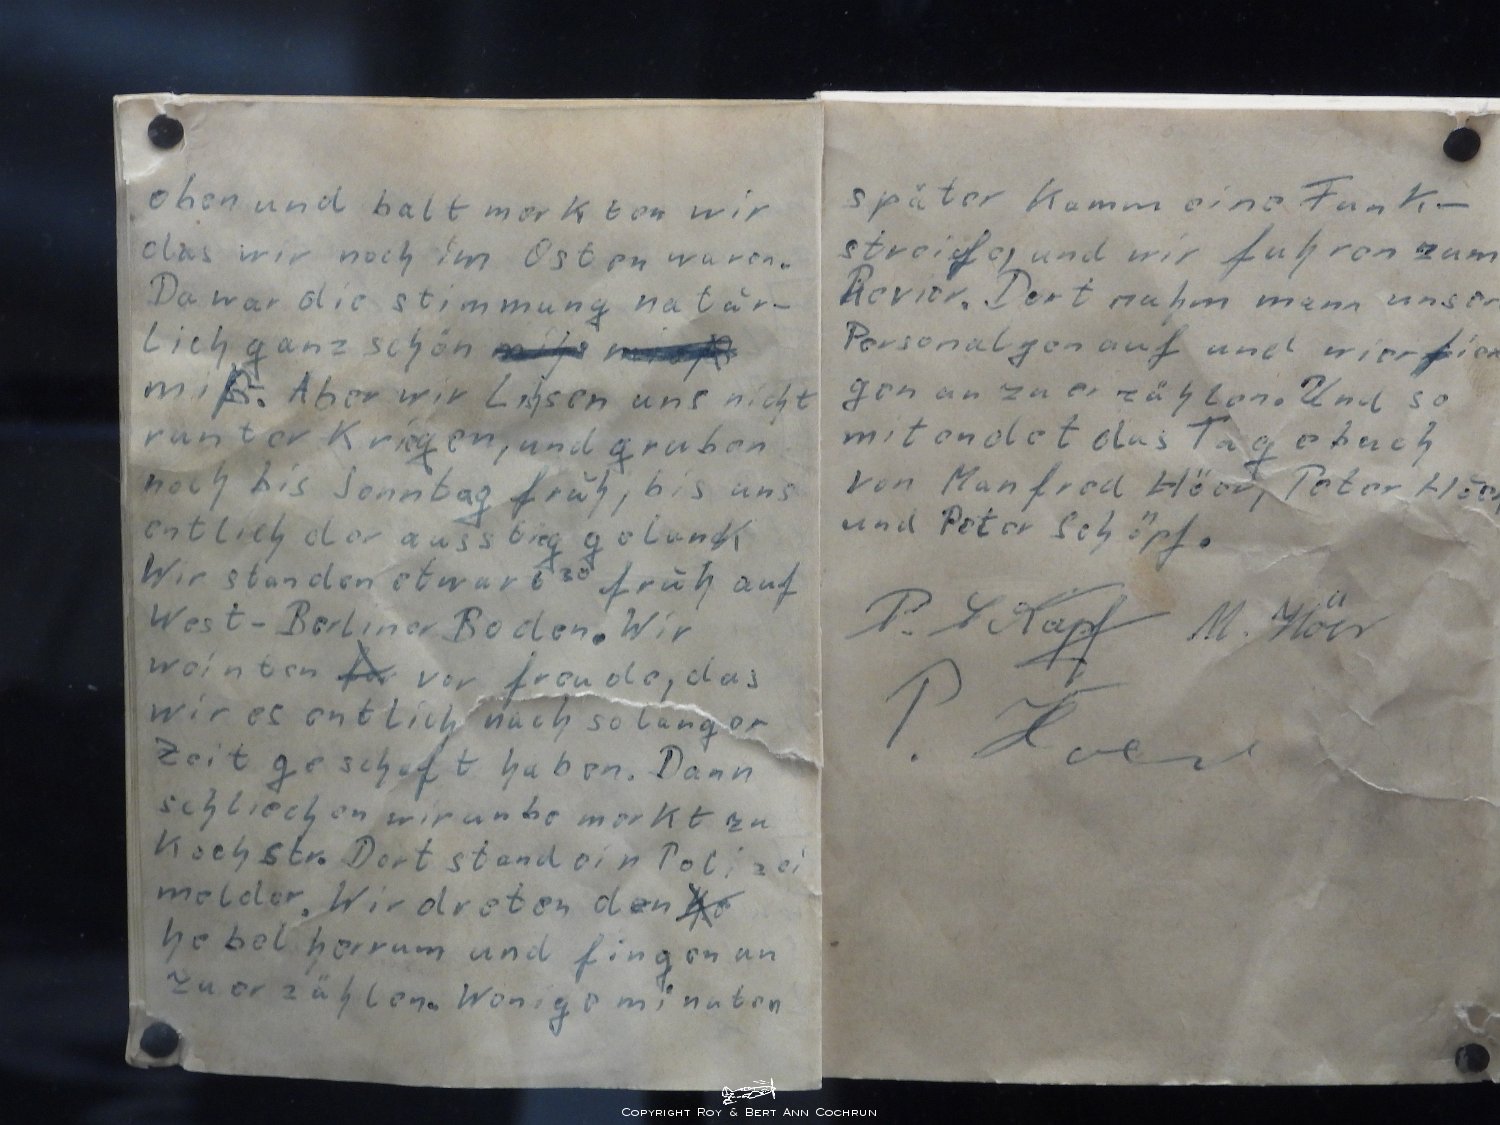 oben und balt merkten wir
das wir noch im Osten waren.
Da war die stimmung natür-
lich ganz schön
miß. Aber wir Lißen uns nicht
runter Krigen, und gruben
noch bis Sonntag früh, bis uns
entlich der aussbieg gelunk
Wir standen etwar 6³⁰ früh auf
West-Berliner Boden. Wir
weinten vor freude, das
wir es entlich nach solanger
Zeit geschaft haben. Dann
schliechen wir unbemerkt zu
Kochstr. Dort stand ein Polizei
melder. Wir dreten den
hebel herrum und fingen an
zu erzählen. Wenige minuten
später Kamm eine Funk-
streife, und wir fuhren zum
Revier. Dort nahm mann unser
Personalgen auf und wier fien
gen an zu erzählen. Und so
mit endet das Tagebuch
von Manfred Höer, Peter Höer
und Peter Schöpf.
P. Schöpf M. Höer
P. Höer
COPYRIGHT ROY & BERT ANN COCHRUN